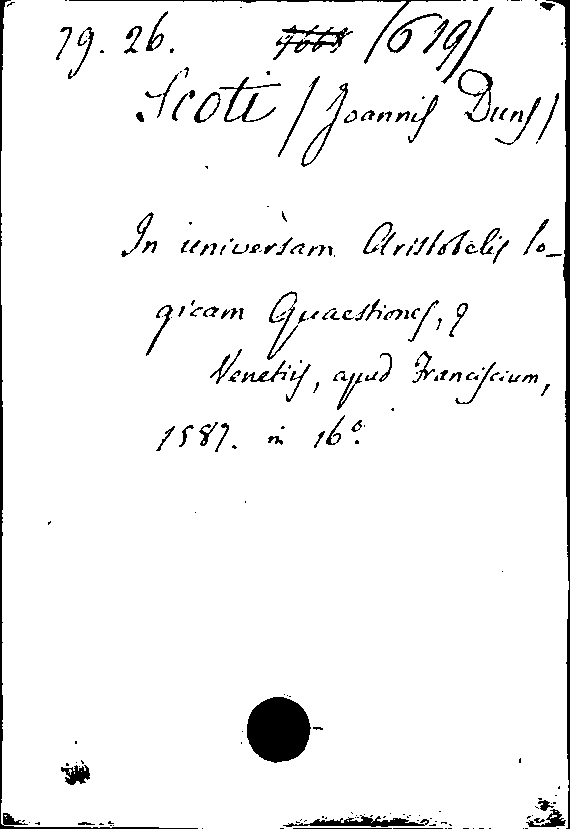 19. 26. /619/
Scoti /Joannis Duns/
In universam Aristotelis lo-
gicam Quaestiones,
Venetiis, apud Franciscum,
1587. in 16°.